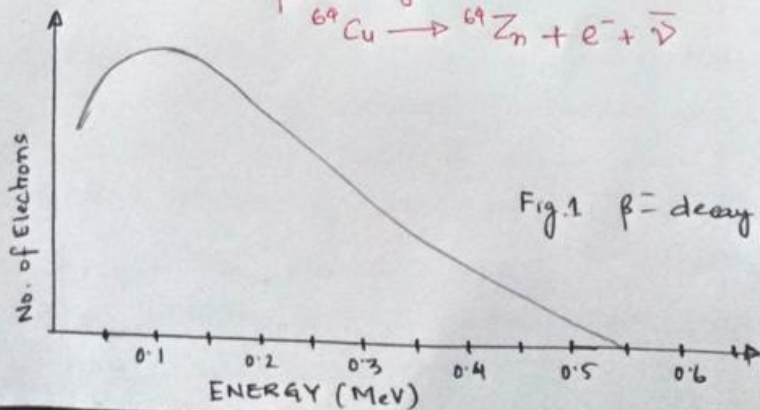 ⁶⁴Cu → ⁶⁴Zn + e⁻ + ν̄
No. of Electrons
Fig.1 β⁻ decay
0.1 0.2 0.3 0.4 0.5 0.6
ENERGY (MeV)